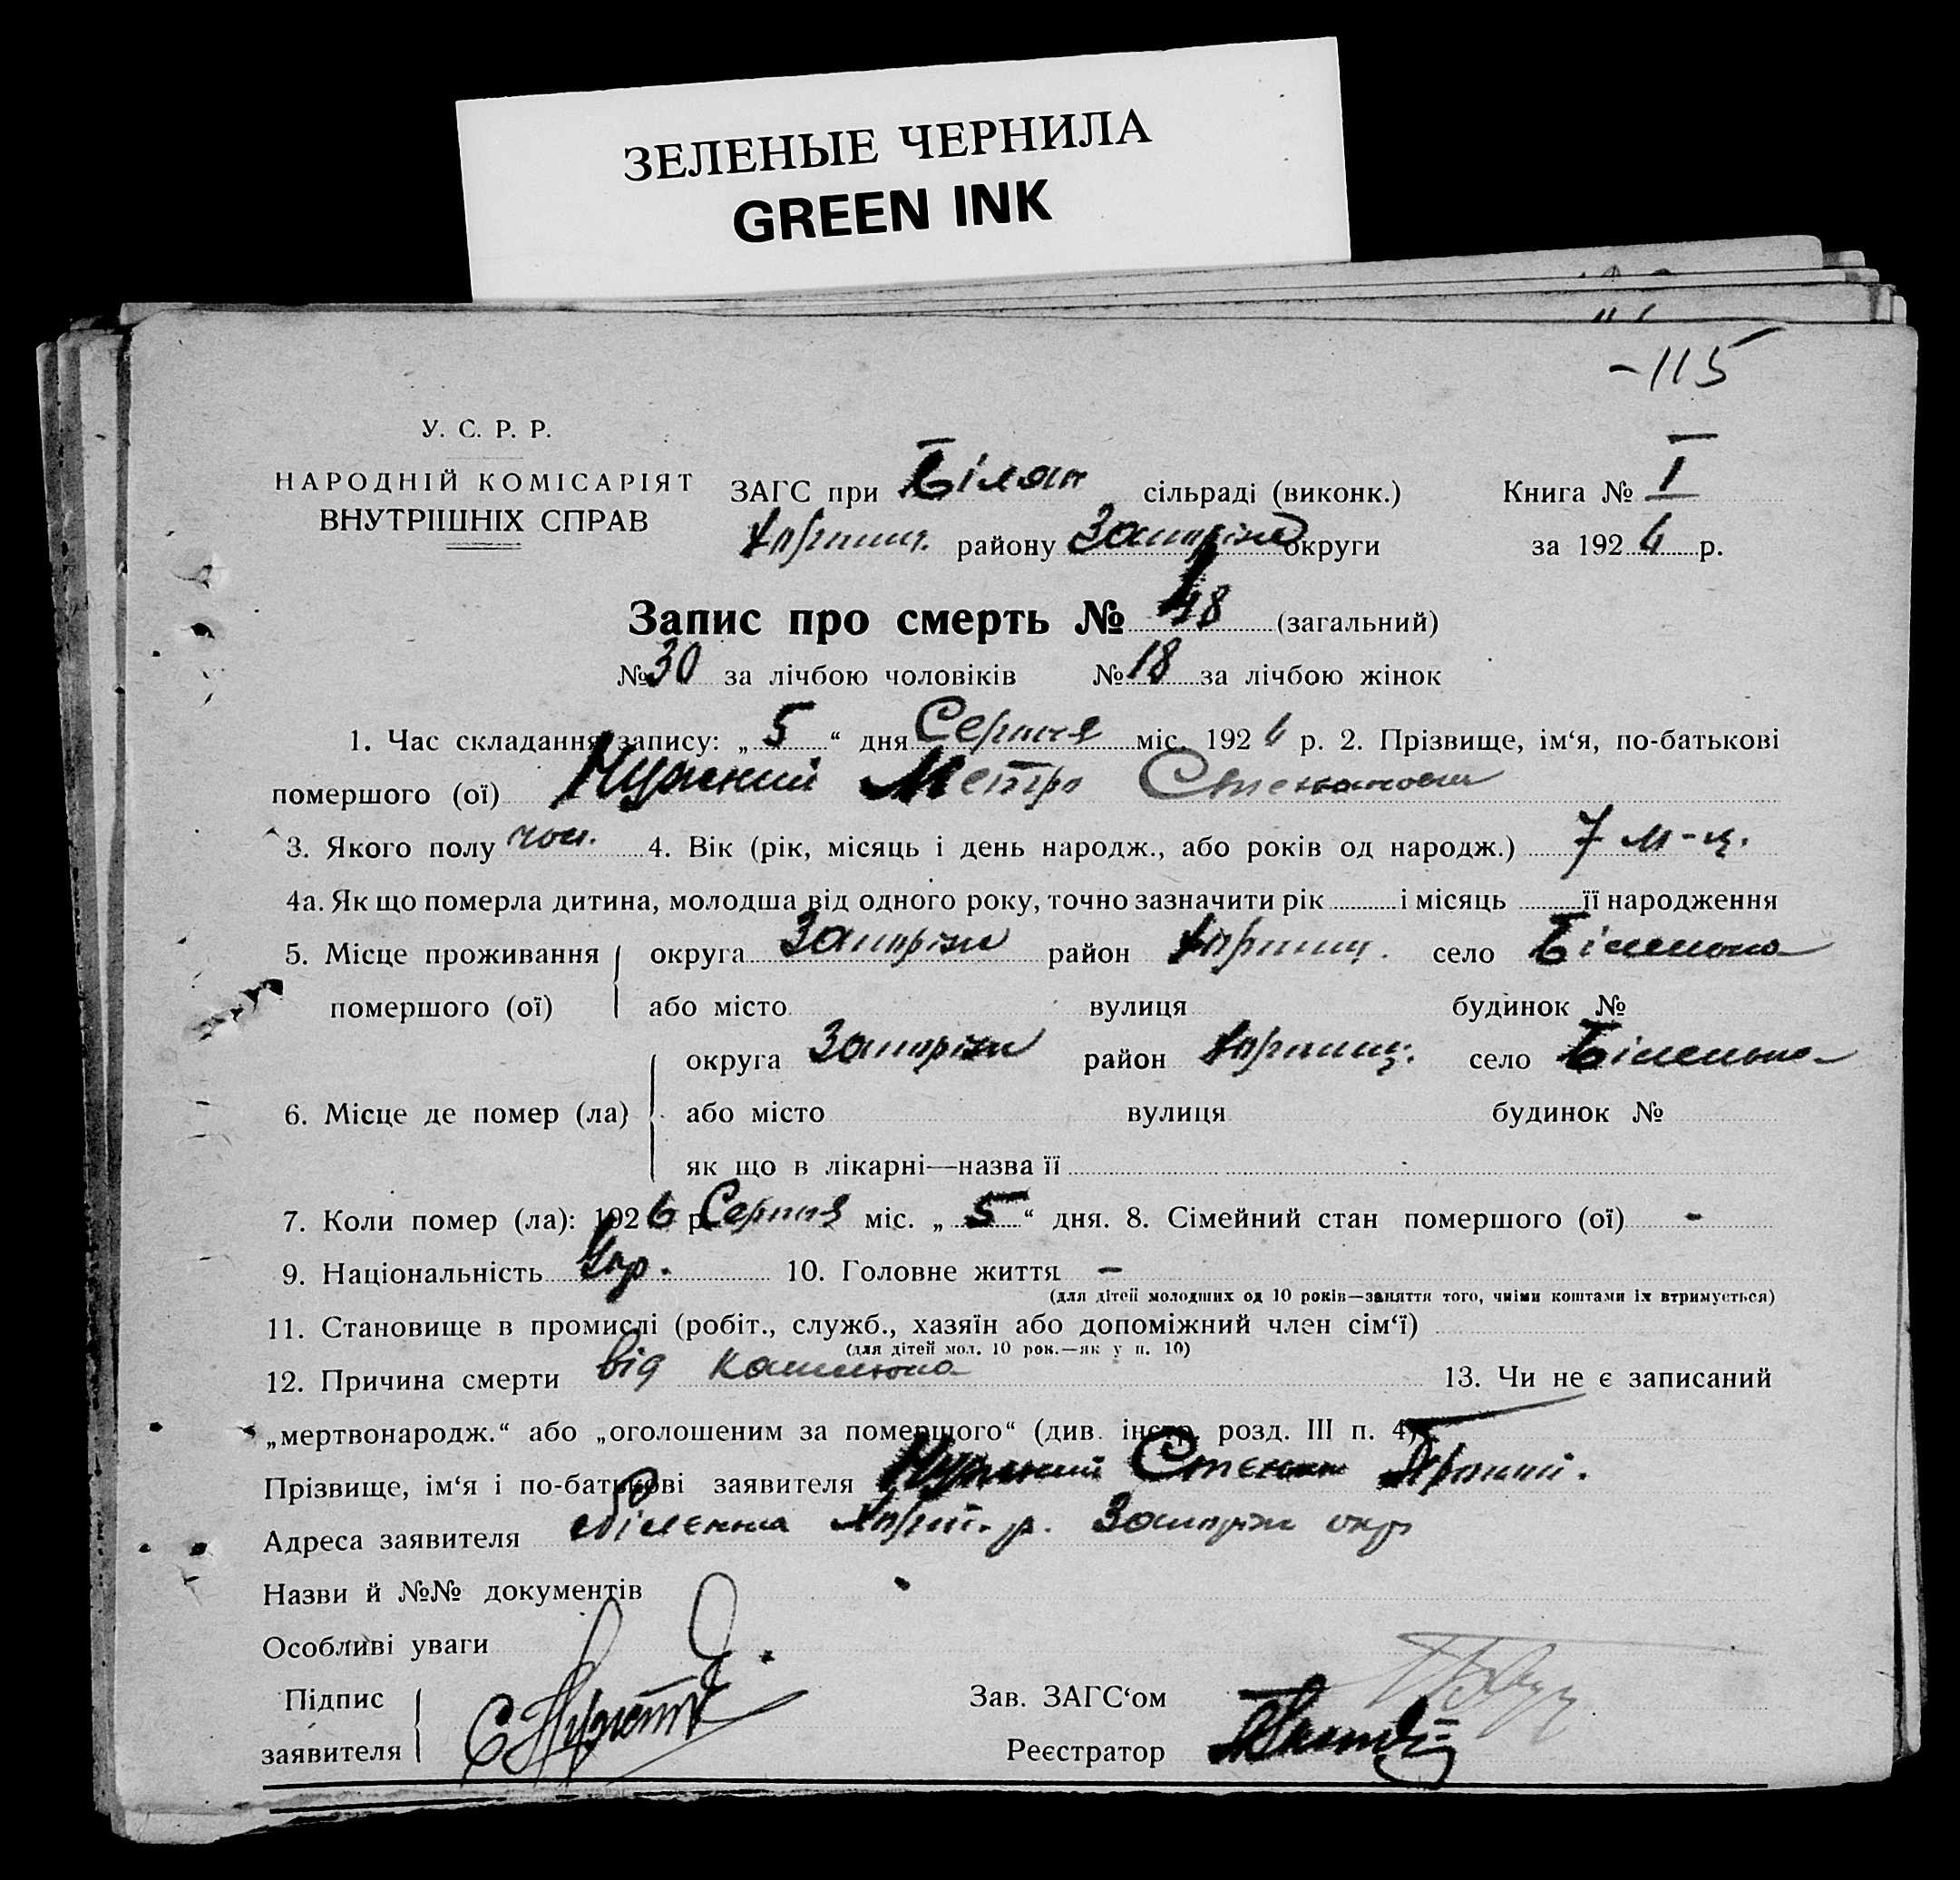 ЗЕЛЕНЫЕ ЧЕРНИЛА
GREEN INK
-115
У. С. Р. Р.
НАРОДНІЙ КОМІСАРІЯТ
ВНУТРІШНІХ СПРАВ
ЗАГС при сільраді (виконк.) Книга № I
району Запоріж округи за 1926 р.
Запис про смерть № 48 (загальний)
№ 30 за лічбою чоловіків № 18 за лічбою жінок
1. Час складання запису: „ 5 “ дня Серпня міс. 1926 р. 2. Прізвище, ім‘я, по-батькові
помершого (ої) Петро Степанович
3. Якого полу чол. 4. Вік (рік, місяць і день народж., або років од народж.) 7 м-ц.
4а. Як що померла дитина, молодша від одного року, точно зазначити рік і місяць її народження
5. Місце проживання округа Запоріж район село Біленька
помершого (ої) або місто вулиця будинок №
округа Запоріж район село Біленька
6. Місце де помер (ла) або місто вулиця будинок №
як що в лікарні—назва її
7. Коли помер (ла): 1926 р. Серпня міс. „ 5 “ дня. 8. Сімейний стан помершого (ої) -
9. Національність Укр. 10. Головне життя –
(для дітей молодших од 10 років—заняття того, чиїми коштами їх втримується)
11. Становище в промислі (робіт., служб., хазяїн або допоміжний член сім‘ї)
(для дітей мол. 10 рок.—як у п. 10)
12. Причина смерти від кашлюка 13. Чи не є записаний
„мертвонародж.“ або „оголошеним за помершого“ (див. інстр. розд. III п. 4)
Прізвище, ім‘я і по-батькові заявителя Степан
Адреса заявителя Біленька р. Запоріж окр
Назви й №№ документів
Особливі уваги
Підпис
заявителя
Зав. ЗАГС‘ом
Реєстратор